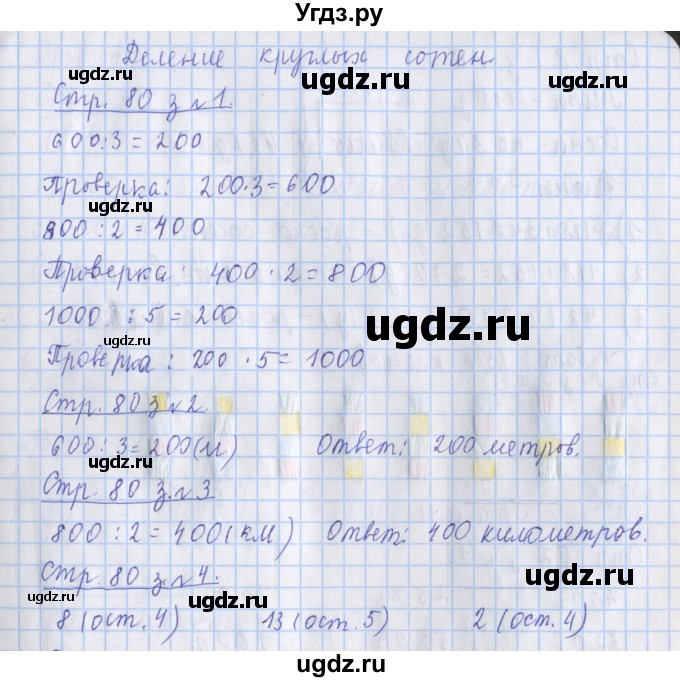 Угдз.ру
Деление круглых сотен
ugdz.ru ugdz.ru
Стр. 80 з №1.
600:3=200
Проверка: 200·3=600
ugdz.ru
800:2=400
Проверка: 400·2=800
ugdz.ru
1000:5=200
ugdz.ru
ugdz.ru
Проверка: 200·5=1000
Стр. 80 з №2.
ugdz.ru
600:3=200(м) Ответ: 200 метров.
ugdz.ru ugdz.ru
Стр. 80 з.№3
800:2=400(км) Ответ: 400 километров.
Стр. 80 з.№4.
ugdz.ru
ugdz.ru ugdz.ru
8 (ост. 4) 13 (ост. 5) 2 (ост. 4)
ugdz.ru